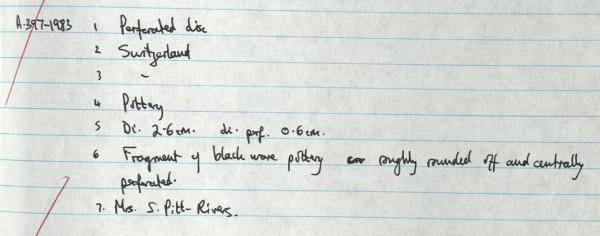 A.397-1983 1 Perforated disc
2 Switzerland
3 -
4 Pottery
5 Di. 2.6cm. di. perf. 0.6cm.
6 Fragment of black ware pottery roughly rounded off and centrally
perforated.
7. Mrs. S. Pitt-Rivers.